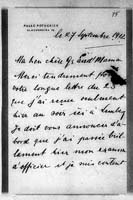 15
PALAC POTOCKICH
le 27 Septembre 1912
Ma bien chère Gd Mama
Merci tendrement pour
votre longue lettre du 23
que j'ai reçue seulement
hier au soir ici à
Je dois vous annoncer d'a-
bord que j'ai passé bril-
lamment hier mon examen
d'officier et je suis content